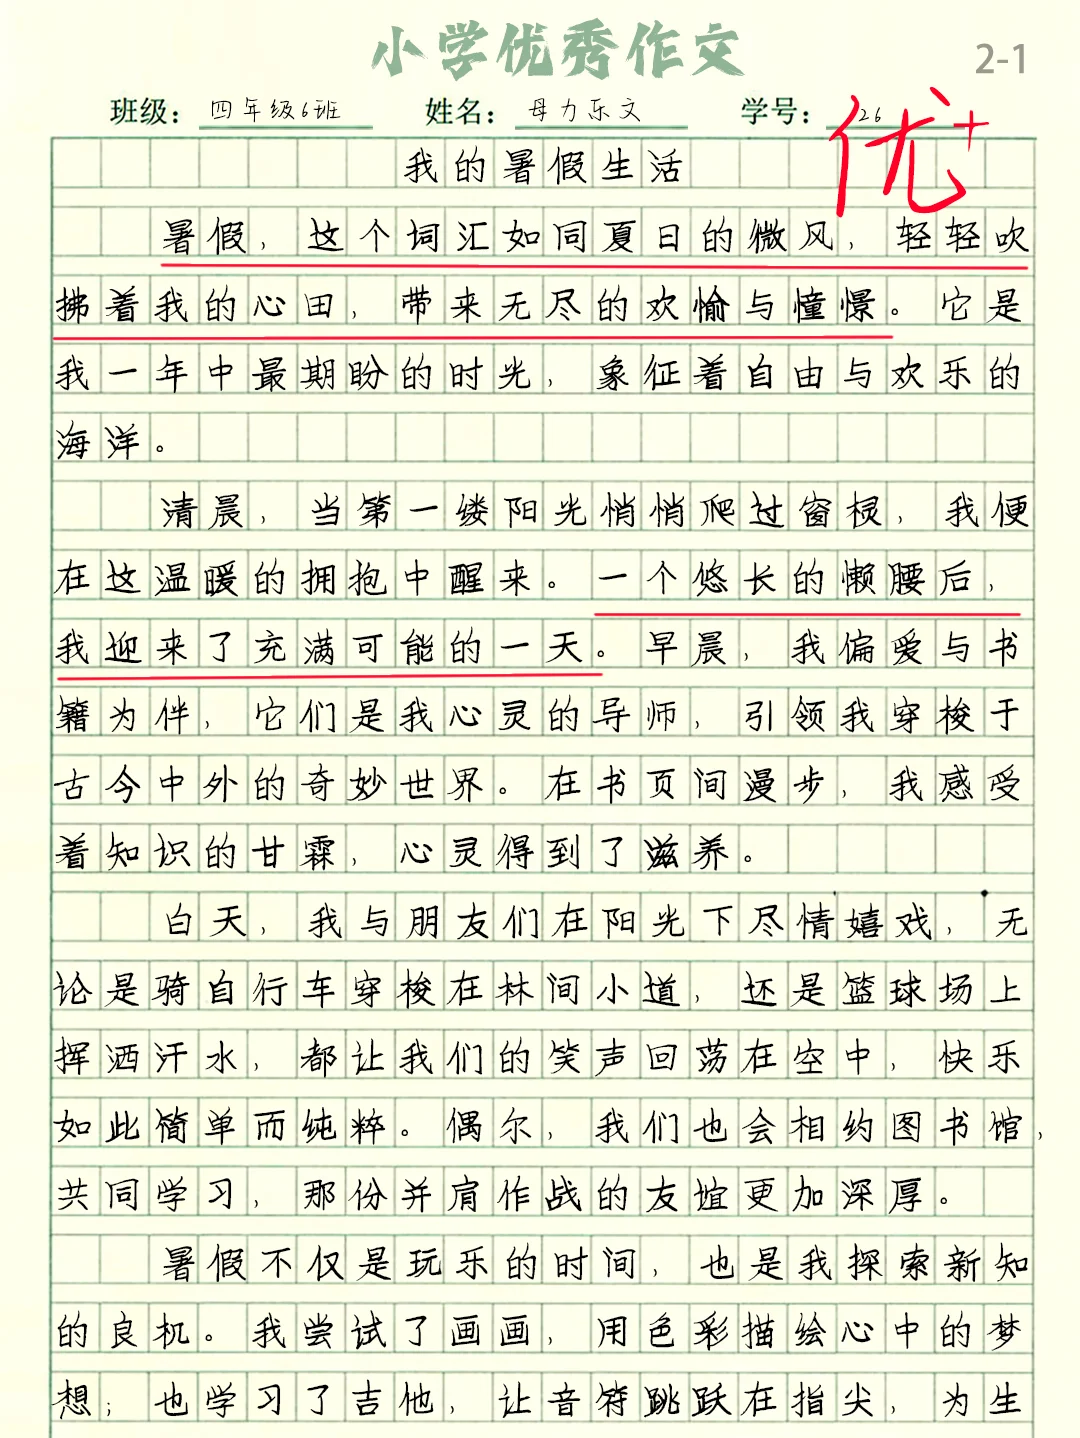 小学优秀作文
2-1
班级：四年级6班 姓名：母力乐文 学号：26
优+
我的暑假生活
暑假，这个词汇如同夏日的微风，轻轻吹
拂着我的心田，带来无尽的欢愉与憧憬。它是
我一年中最期盼的时光，象征着自由与欢乐的
海洋。
清晨，当第一缕阳光悄悄爬过窗棂，我便
在这温暖的拥抱中醒来。一个悠长的懒腰后，
我迎来了充满可能的一天。早晨，我偏爱与书
籍为伴，它们是我心灵的导师，引领我穿梭于
古今中外的奇妙世界。在书页间漫步，我感受
着知识的甘霖，心灵得到了滋养。
白天，我与朋友们在阳光下尽情嬉戏，无
论是骑自行车穿梭在林间小道，还是篮球场上
挥洒汗水，都让我们的笑声回荡在空中，快乐
如此简单而纯粹。偶尔，我们也会相约图书馆，
共同学习，那份并肩作战的友谊更加深厚。
暑假不仅是玩乐的时间，也是我探索新知
的良机。我尝试了画画，用色彩描绘心中的梦
想；也学习了吉他，让音符跳跃在指尖，为生